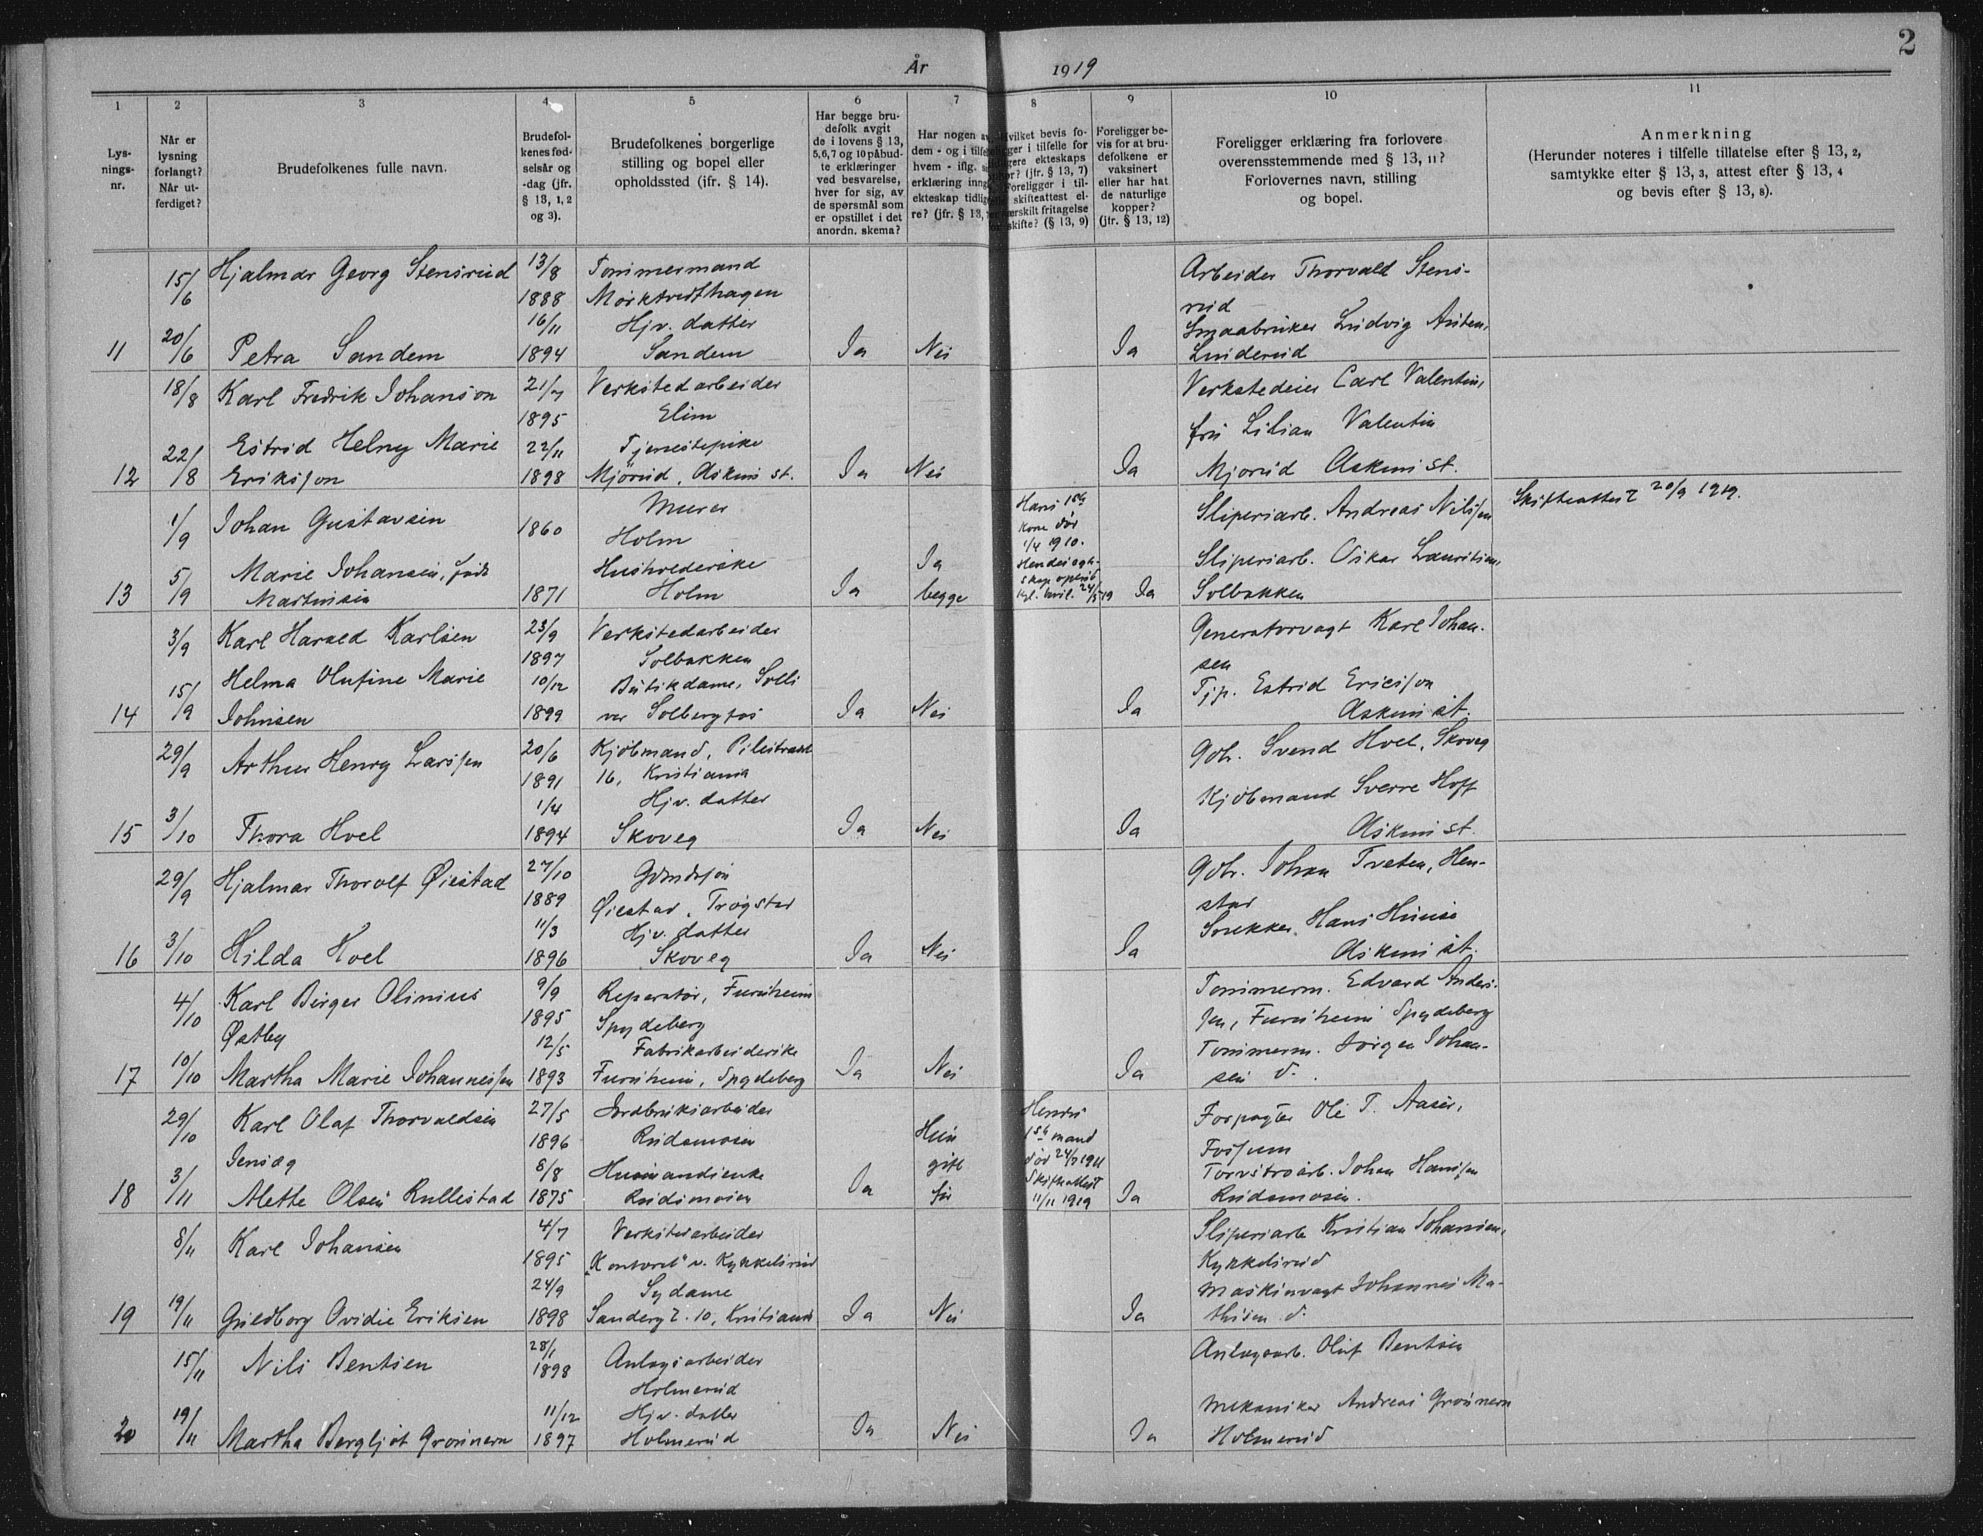 2
År 1919
1 2 3 4 5 6 7 8 9 10 11
Lys-
nings-
nr.
Når er
lysning
forlangt?
Når ut-
ferdiget?
Brudefolkenes fulle navn.
Brudefol-
kenes fød-
selsår og
-dag (jfr.
§ 13, 1, 2
og 3).
Brudefolkenes borgerlige
stilling og bopel eller
opholdssted (ifr. § 14).
Har begge bru-
defolk avgit
de i lovens § 13,
5,6,7 og 10 påbud-
te erklæringer
ved besvarelse,
hver for sig, av
de spørsmål som
er opstillet i det
anordn. skema?
Har nogen av
dem - og i tilfelle
hvem - iflg.
erklæring inngå
ekteskap tidlig
re? (jfr. § 13,
Hvilket bevis fo-
religger i tilfelle for
tidligere ekteskaps
ophør? (jfr. § 13, 7)
Foreligger i til-
felle skifteattest el-
ler særskilt fritagelse
for skifte? (§ 13, 9)
Foreligger be-
vis for at bru-
defolkene er
vaksinert
eller har hat
de naturlige
kopper?
(jfr. § 13, 12)
Foreligger erklæring fra forlovere
overensstemmende med § 13, 11?
Forlovernes navn, stilling
og bopel.
Anmerkning
(Herunder noteres i tilfelle tillatelse efter § 13, 2,
samtykke efter § 13, 3, attest efter § 13, 4
og bevis efter § 13, 8).
11
15/6
20/6
Hjalmar Georg Stensrud
Petra Sandem
13/8
1888
16/11
1894
Tømmermand
Mørktvedthagen
Hjv. datter
Sandem
Ja
Nei
Ja
Arbeider Thorvald Stens-
rud
Smaabruker Ludvig
Linderud
12
18/8
22/8
Karl Fredrik Johanson
Estrid Helny Marie
Eriksson
21/7
1895
22/11
1898
Verkstedarbeider
Elim
Tjenestepike
Mjørud, Askim st.
Ja
Nei
Ja
Verksteder Carl Valentin,
fru Lilian Valentin
Mjørud Askim st.
13
1/9
5/9
Johan Gustavsen
Marie Johansen, født
Martinsen
1860
1871
Murer
Holm
Husholderske
Holm
Ja
Ja
begge
Hans 1ste
kone død
1/4 1910.
Ja
Sliperiarb. Andreas Nilssen
Sliperiarb. Oskar Lauritsen,
Solbakken
Skifteattest 20/9 1919.
14
3/9
15/9
Karl Harald Karlsen
Helma Olufine Marie
Johnsen
23/9
1897
10/12
1899
Verkstedarbeider
Solbakken
Butikdame, Solli
ver Solbergfos
Ja
Nei
Ja
Generatorvagt Karl Johan-
sen
Tjp. Estrid Ericsson
Askim st.
15
29/9
3/10
Arthur Henry Larssen
Thora Hoel
20/6
1891
1/4
1894
Kjøbmand, Pilestrædet
16, Kristiania
Hjv. datter
Skoveg
Ja
Nei
Ja
Gdbr. Svend Hoel, Skoveg
Kjøbmand Sverre Hoff
Askim st.
16
29/9
3/10
Hjalmar Thorolf Øiestad
Hilda Hoel
27/10
1889
11/3
1896
Gdmdsøn
Øiestad, Trøgstad
Hjv. datter
Skoveg
Ja
Nei
Ja
Gdbr. Johan Tveten, Hen-
stad
Snekker, Hans
Askim st.
17
4/10
10/10
Karl Birger Olinius
Østby
Martha Marie Johannessen
9/9
1895
12/5
1893
Reparatør, Furuheim
Spydeberg
Fabrikarbeiderske
Furuheim, Spydeberg
Ja
Nei
Ja
Tømmerm. Edvard Anders-
sen, Furuheim Spydeberg
Tømmerm. Jørgen Johan-
sen d.
18
29/10
3/11
Karl Olaf Thorvaldsen
Jensæg
Mette Olsen Rullestad
27/5
1896
8/8
1875
Jordbruksarbeider
Rudsmosen
Husmandsenke
Rudsmosen
Ja
Hun
gift
før
Hendes
1ste mand
død 24/7 1911
Skifteattest
11/11 1919
Ja
Forpagter Ole T. Aasen,
Fossum
Torvstrøarb. Johan Hanssen
Rudsmosen.
19
8/11
19/11
Karl Johansen
Guedborg Ovidie Eriksen
4/7
1895
24/9
1898
Verkstedarbeider
"Kontoret" v. Kykkelsrud
Sydame
Sanderg t. 10, Kristiania
Ja
Nei
Ja
Sliperiarb Kristian Johansen,
Kykkelsrud
Maskinvagt Johannes Ma-
thisen d.
20
15/11
19/11
Nils Bentsen
Martha Bergljot Grønnern
28/1
1898
11/12
1897
Anlægsarbeider
Holmerud
Hjv. datter
Holmerud
Ja
Nei
Ja
Anlægsarb. Oluf Bentsen
Mekaniker Andreas Grønnern
Holmerud